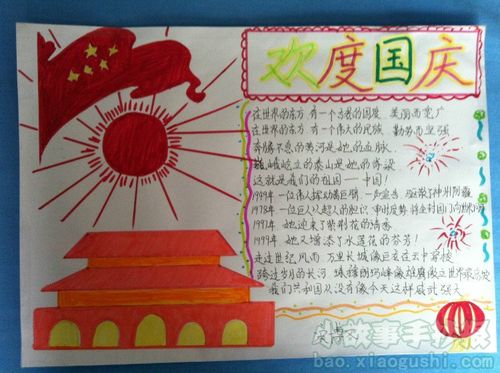 欢度国庆
在世界的东方 有一个古老的国度 美丽而宽广
在世界的东方 有一个伟大的民族 勤劳而坚强
奔腾不息的黄河是她的血脉
巍峨屹立的泰山是她的脊梁
这就是我们的祖国——中国!
1949年 一位伟人挥动巨臂 一声宣告
1978年 一位巨人以超人的胆识 审时度势
1997年 她迎来了紫荆花的清香
1999年 她又增添了水莲花的芬芳!
走过世纪风雨 万里长城像巨龙在云中穿梭
跨过岁月的长河 珠穆朗玛峰像雄鹰傲立世界
我们共和国从没有像今天这样威武强大
小故事手抄报
bao.xiaogushi.com